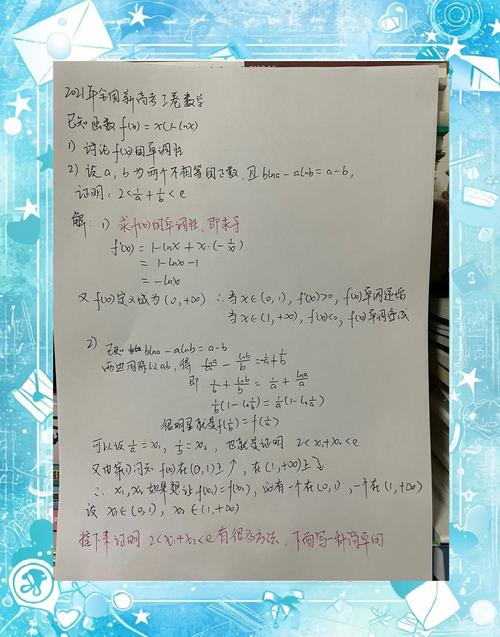 2021年全国新高考I卷数学
已知函数 f(x) = x(1-lnx)
1) 讨论f(x)的单调性
2) 设a, b 为两个不相等的正数, 且 blna - alnb = a-b,
证明: 2<1/a+1/b<e
解: 1) 求f(x)的单调性, 即求导
f'(x) = 1-lnx + x·(-1/x)
= 1-lnx-1
= -lnx
又 f(x)定义域为 (0, +∞) ∴ 当x∈(0, 1), f'(x)>0, f(x)单调递增
当x∈(1, +∞), f'(x)<0, f(x)单调递减
2) 已知 blna - alnb = a-b
两边同除以ab, 得 lna/a - lnb/b = 1/b
即 1/b + lnb/b = 1/a + lna/a
1/b(1-ln1/b) = 1/a(1-ln1/a)
很明显就是f(1/b) = f(1/a)
可以设 1/a = x₁, 1/b = x₂, 也就是证明 2<x₁+x₂<e
又由第1)问知 f(x)在(0,1)上↑, 在(1,+∞)上↓
∴ x₁, x₂ 如果想让f(x₁) = f(x₂), 必有一个在(0,1), 一个在(1,+∞)
设 x₁∈(0,1), x₂∈(1,+∞)
接下来证明 2<x₁+x₂<e 有很多方法, 下面写一种简单的